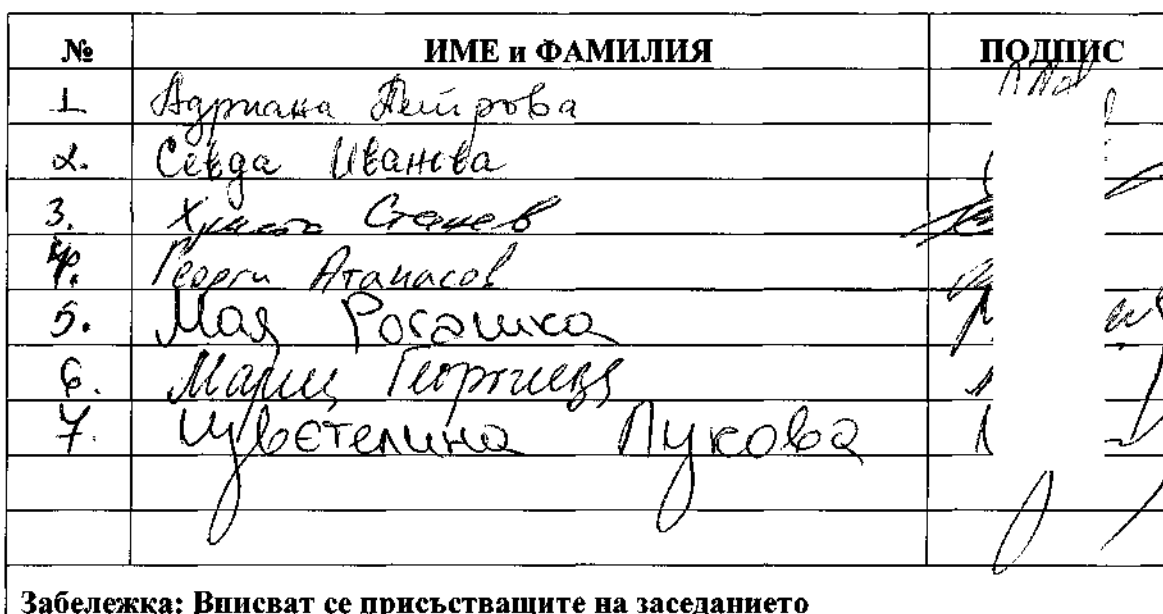 № ИМЕ и ФАМИЛИЯ ПОДПИС
1 Адриана Петрова
2. Севда Иванова
3. Христо Станев
4. Георги Атанасов
5. Мая
6. Мария Георгиева
7. Цветелина Лукова
Забележка: Вписват се присъстващите на заседанието